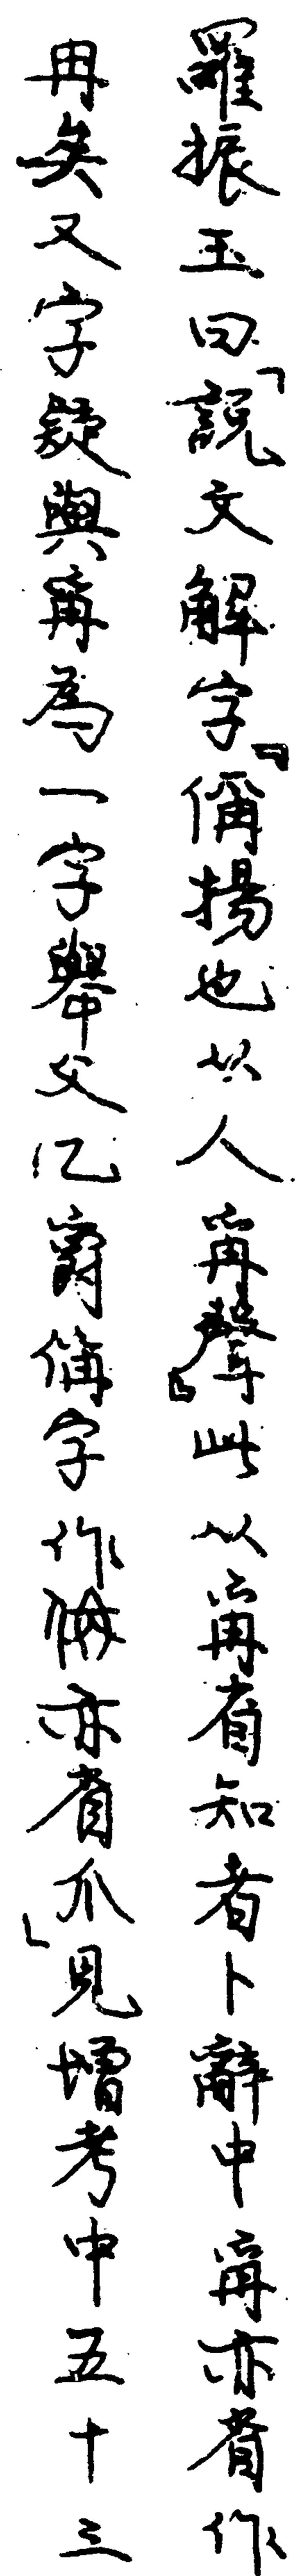 羅振玉曰「說文解字『偁揚也从人爯聲』此从爯省知者卜辭中爯亦省作
冉矣又字疑與爯為一字舉父乙爵偁字作𠇷亦省爪」見增考中五十三